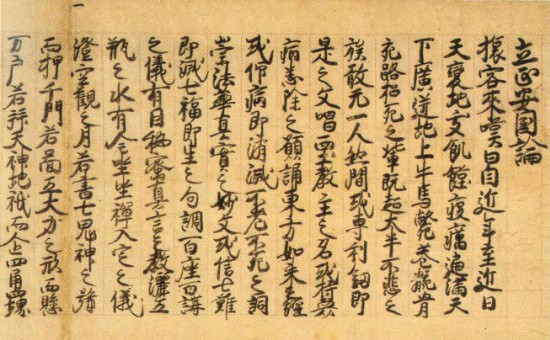 立正安国論
旅客來嘆曰自近年至近日
天變地夭飢饉疫癘遍滿天
下廣迸地上牛馬斃巷骸骨
充路招死之輩既超大半不悲之
族敢无一人然間或專利劒即
是之文唱西土教主之名或恃衆
病悉除之願誦東方如來之經
或仰病即消滅不老不死之詞
崇法華真實之妙文或信七難
即滅七福即生之句調百座百講
之儀有因秘密真言之教灑五
瓶之水有坐禪入定之儀
澄空觀之月若書七鬼神之号
而押千門若圖五大力之形而懸
万戸若拜天神地祇而企四角四堺